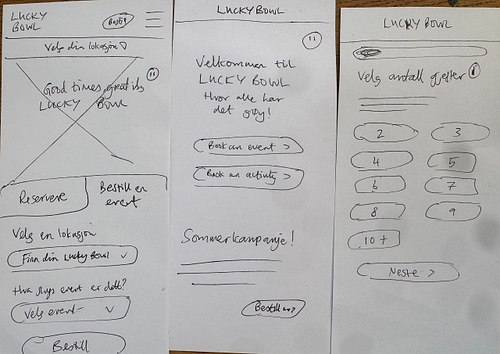 LUCKY
BOWL
Velg din lokasjon
Good times great
LUCKY BOWL
Reservere
Bestill en
event
Velg en lokasjon
Finn din Lucky Bowl
event er det?
Velg event
Bestill
LUCKY BOWL
Velkommen til
LUCKY BOWL
Hvor alle har
det gøy!
Book an event >
Book an activity >
Sommerkampanje!
Bestill
LUCKY BOWL
Velg antall gjester
2
3
4
5
6
7
8
9
10+
Neste >